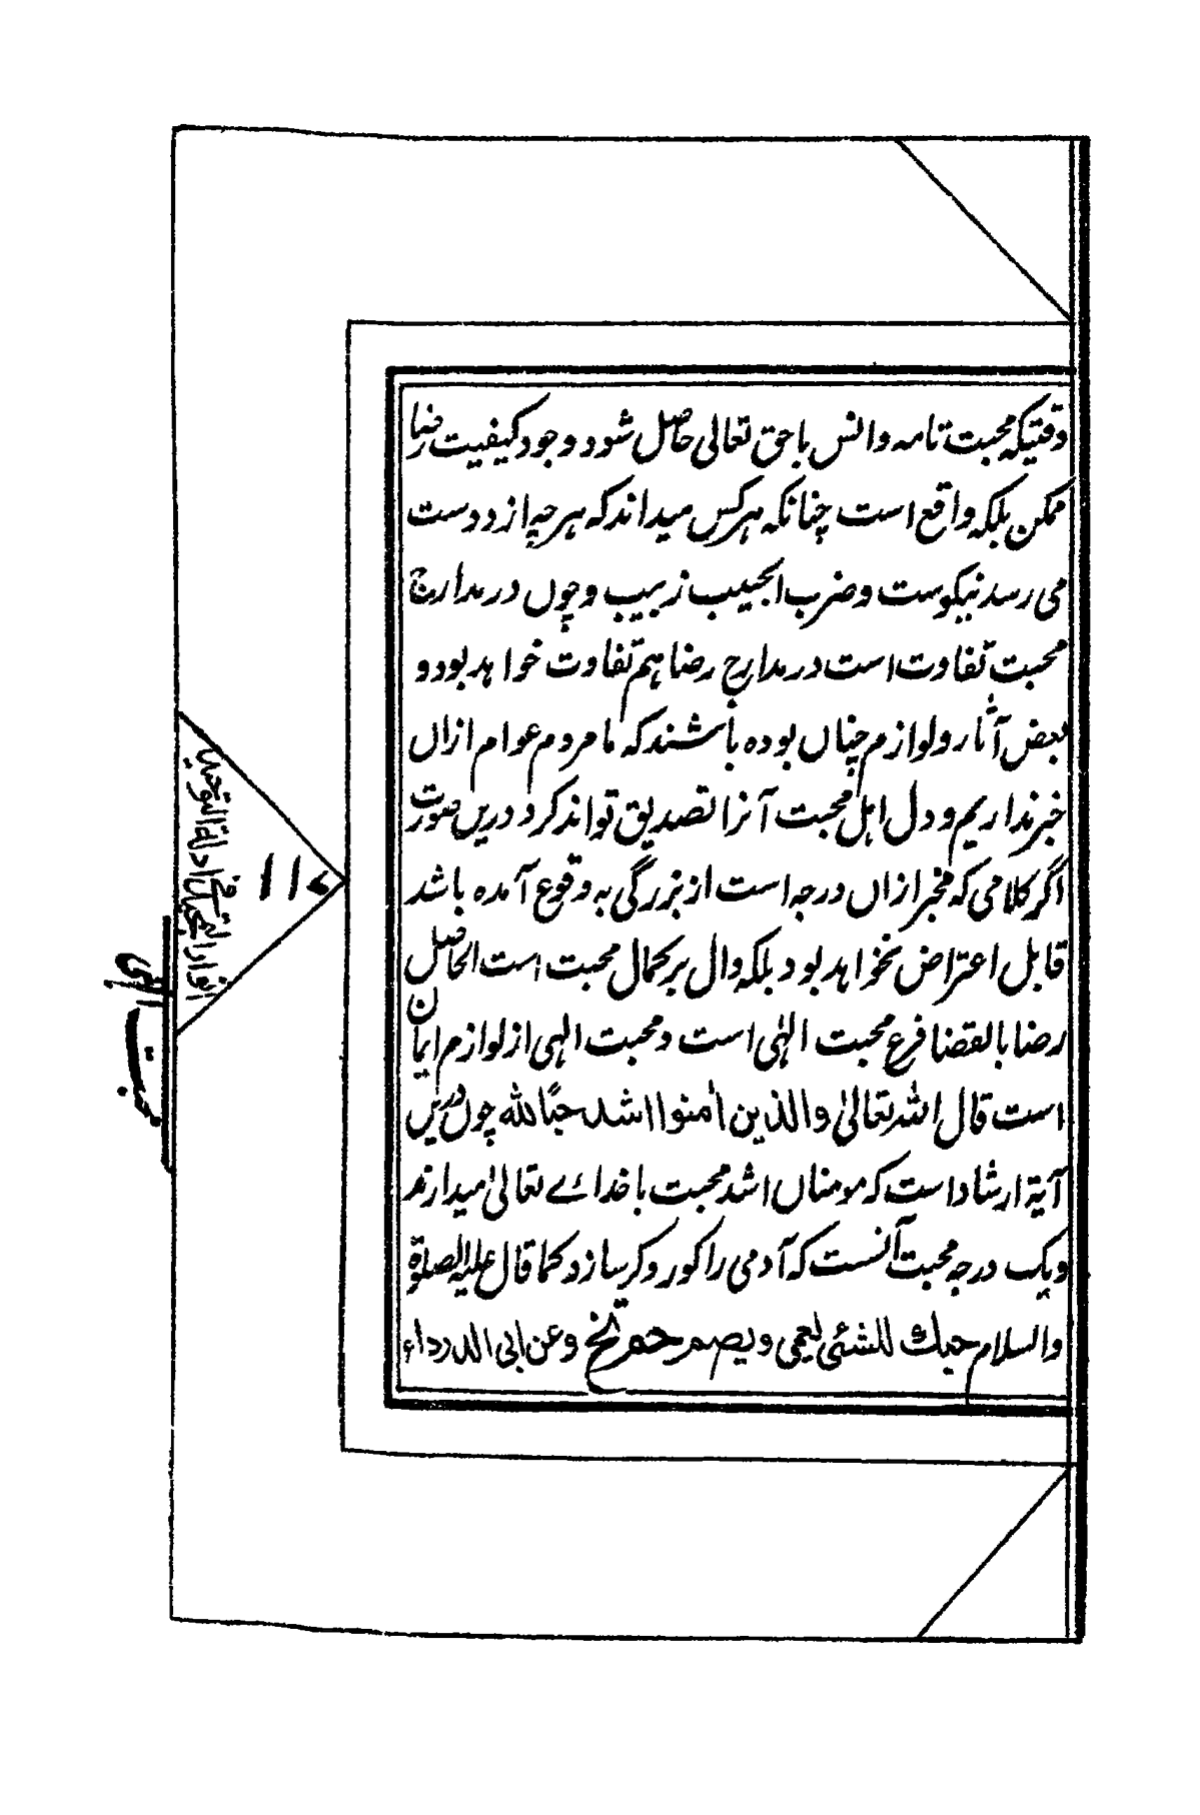 وقتیکه محبت تامه و انس با حق تعالی حاصل شود وجود کیفیت رضا
ممکن بلکه واقع است چنانکه هرکس میداند که هرچه از دوست
می رسد نیکوست و ضرب الحبیب زبیب و چوں در مدارج
محبت تفاوت است در مدارج رضا هم تفاوت خواهد بود و
بعض آثار و لوازم چناں بوده باشند که ما مردم عوام ازاں
خبر نداریم و دل اهل محبت آنرا تصدیق تواند کرد دریں صورت
اگر کلامی که مخبر ازاں درجه است از بزرگی به وقوع آمده باشد
قابل اعتراض نخواهد بود بلکه دال بر کمال محبت است الحاصل
رضا بالقضا فرع محبت الٰهی است و محبت الهی از لوازم ایمان
است قال الله تعالیٰ والذین اٰمنوا اشد حبًا لله چوں دریں
آیة ارشاد است که مومناں اشد محبت با خدائے تعالیٰ میدارند
ویک درجه محبت آنست که آدمی را کور و کر سازد کما قال علیه الصلوة
والسلام حبك للشئی یعمی ویصم حم تخ وعن ابی الدرداء
۱۱۷
محبت الٰهی